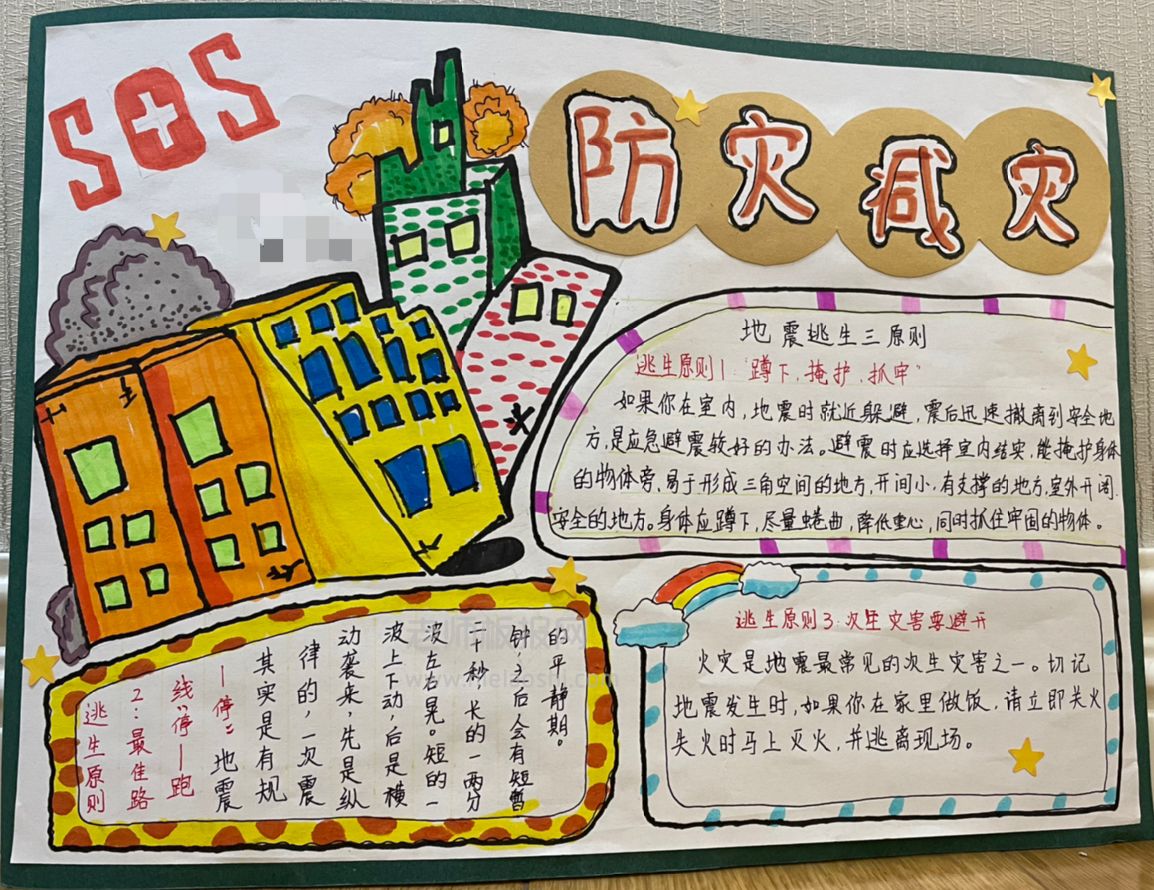 SOS
防灾减灾
地震逃生三原则
逃生原则1:“蹲下、掩护、抓牢”
如果你在室内,地震时就近躲避,震后迅速撤离到安全地
方,是应急避震较好的办法。避震时应选择室内结实,能掩护身体
的物体旁、易于形成三角空间的地方,开间小,有支撑的地方,室外开阔.
安全的地方。身体应蹲下,尽量蜷曲,降低重心,同时抓住牢固的物体。
逃生原则
2:最佳路
线“停—跑
—停”地震
其实是有规
律的,一次震
动袭来,先是纵
波上下动,后是横
波左右晃。短的一
二十秒,长的一两分
钟之后会有短暂
的平静期。
逃生原则3:次生灾害要避开
火灾是地震最常见的次生灾害之一。切记
地震发生时,如果你在家里做饭,请立即关火
失火时马上灭火,并逃离现场。
老师板报网